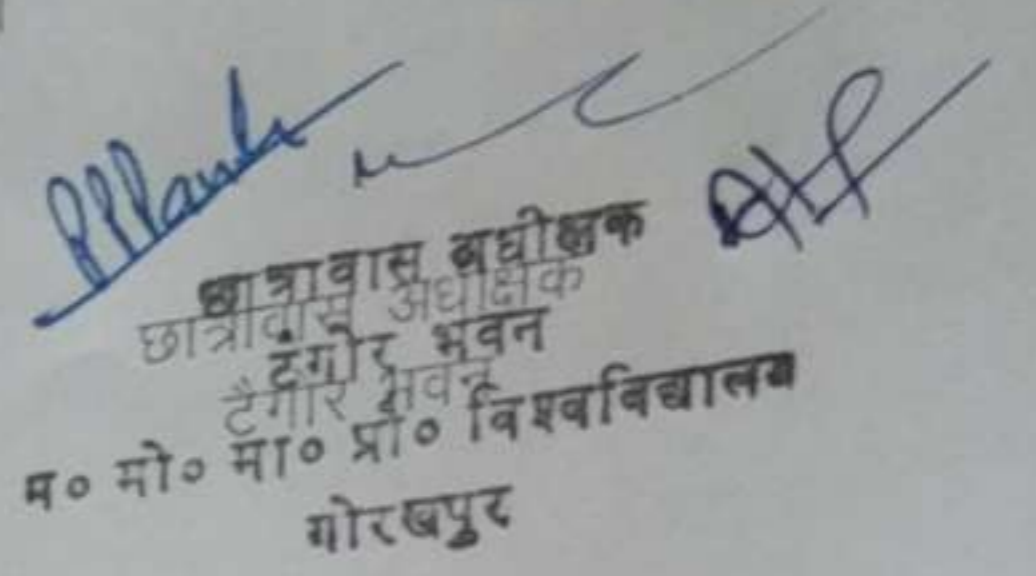 छात्रावास अधीक्षक
छात्रावास अधीक्षक
टैगोर भवन
टैगोर भवन
म० मो० मा० प्रौ० विश्वविद्यालय
गोरखपुर